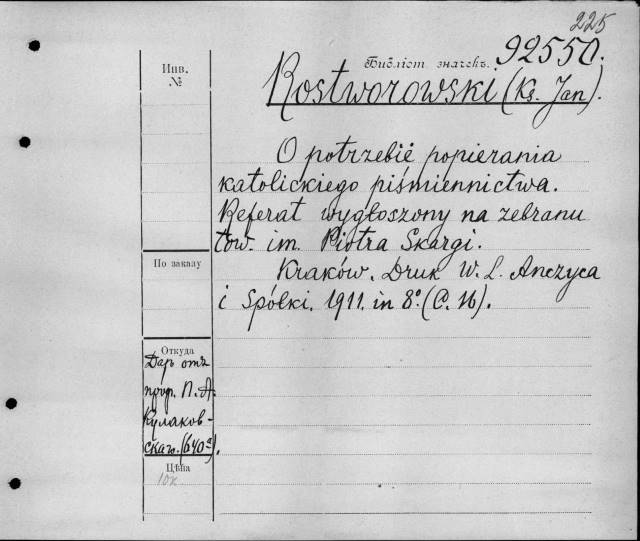 225
Библіот. значекъ. 92550.
Инв.
№
Rostworowski (Ks. Jan).
O potrzebie popierania
katolickiego piśmiennictwa.
Referat wygłoszony na zebranu
tow. im. Piotra Skargi.
По заказу
Kraków. Druk W. L. Anczyca
i Spółki. 1911. in 8º. (С. 16).
Откуда
Даръ отъ
проф. П. А.
Кулаков-
скаго. (640а).
Цѣна
10к